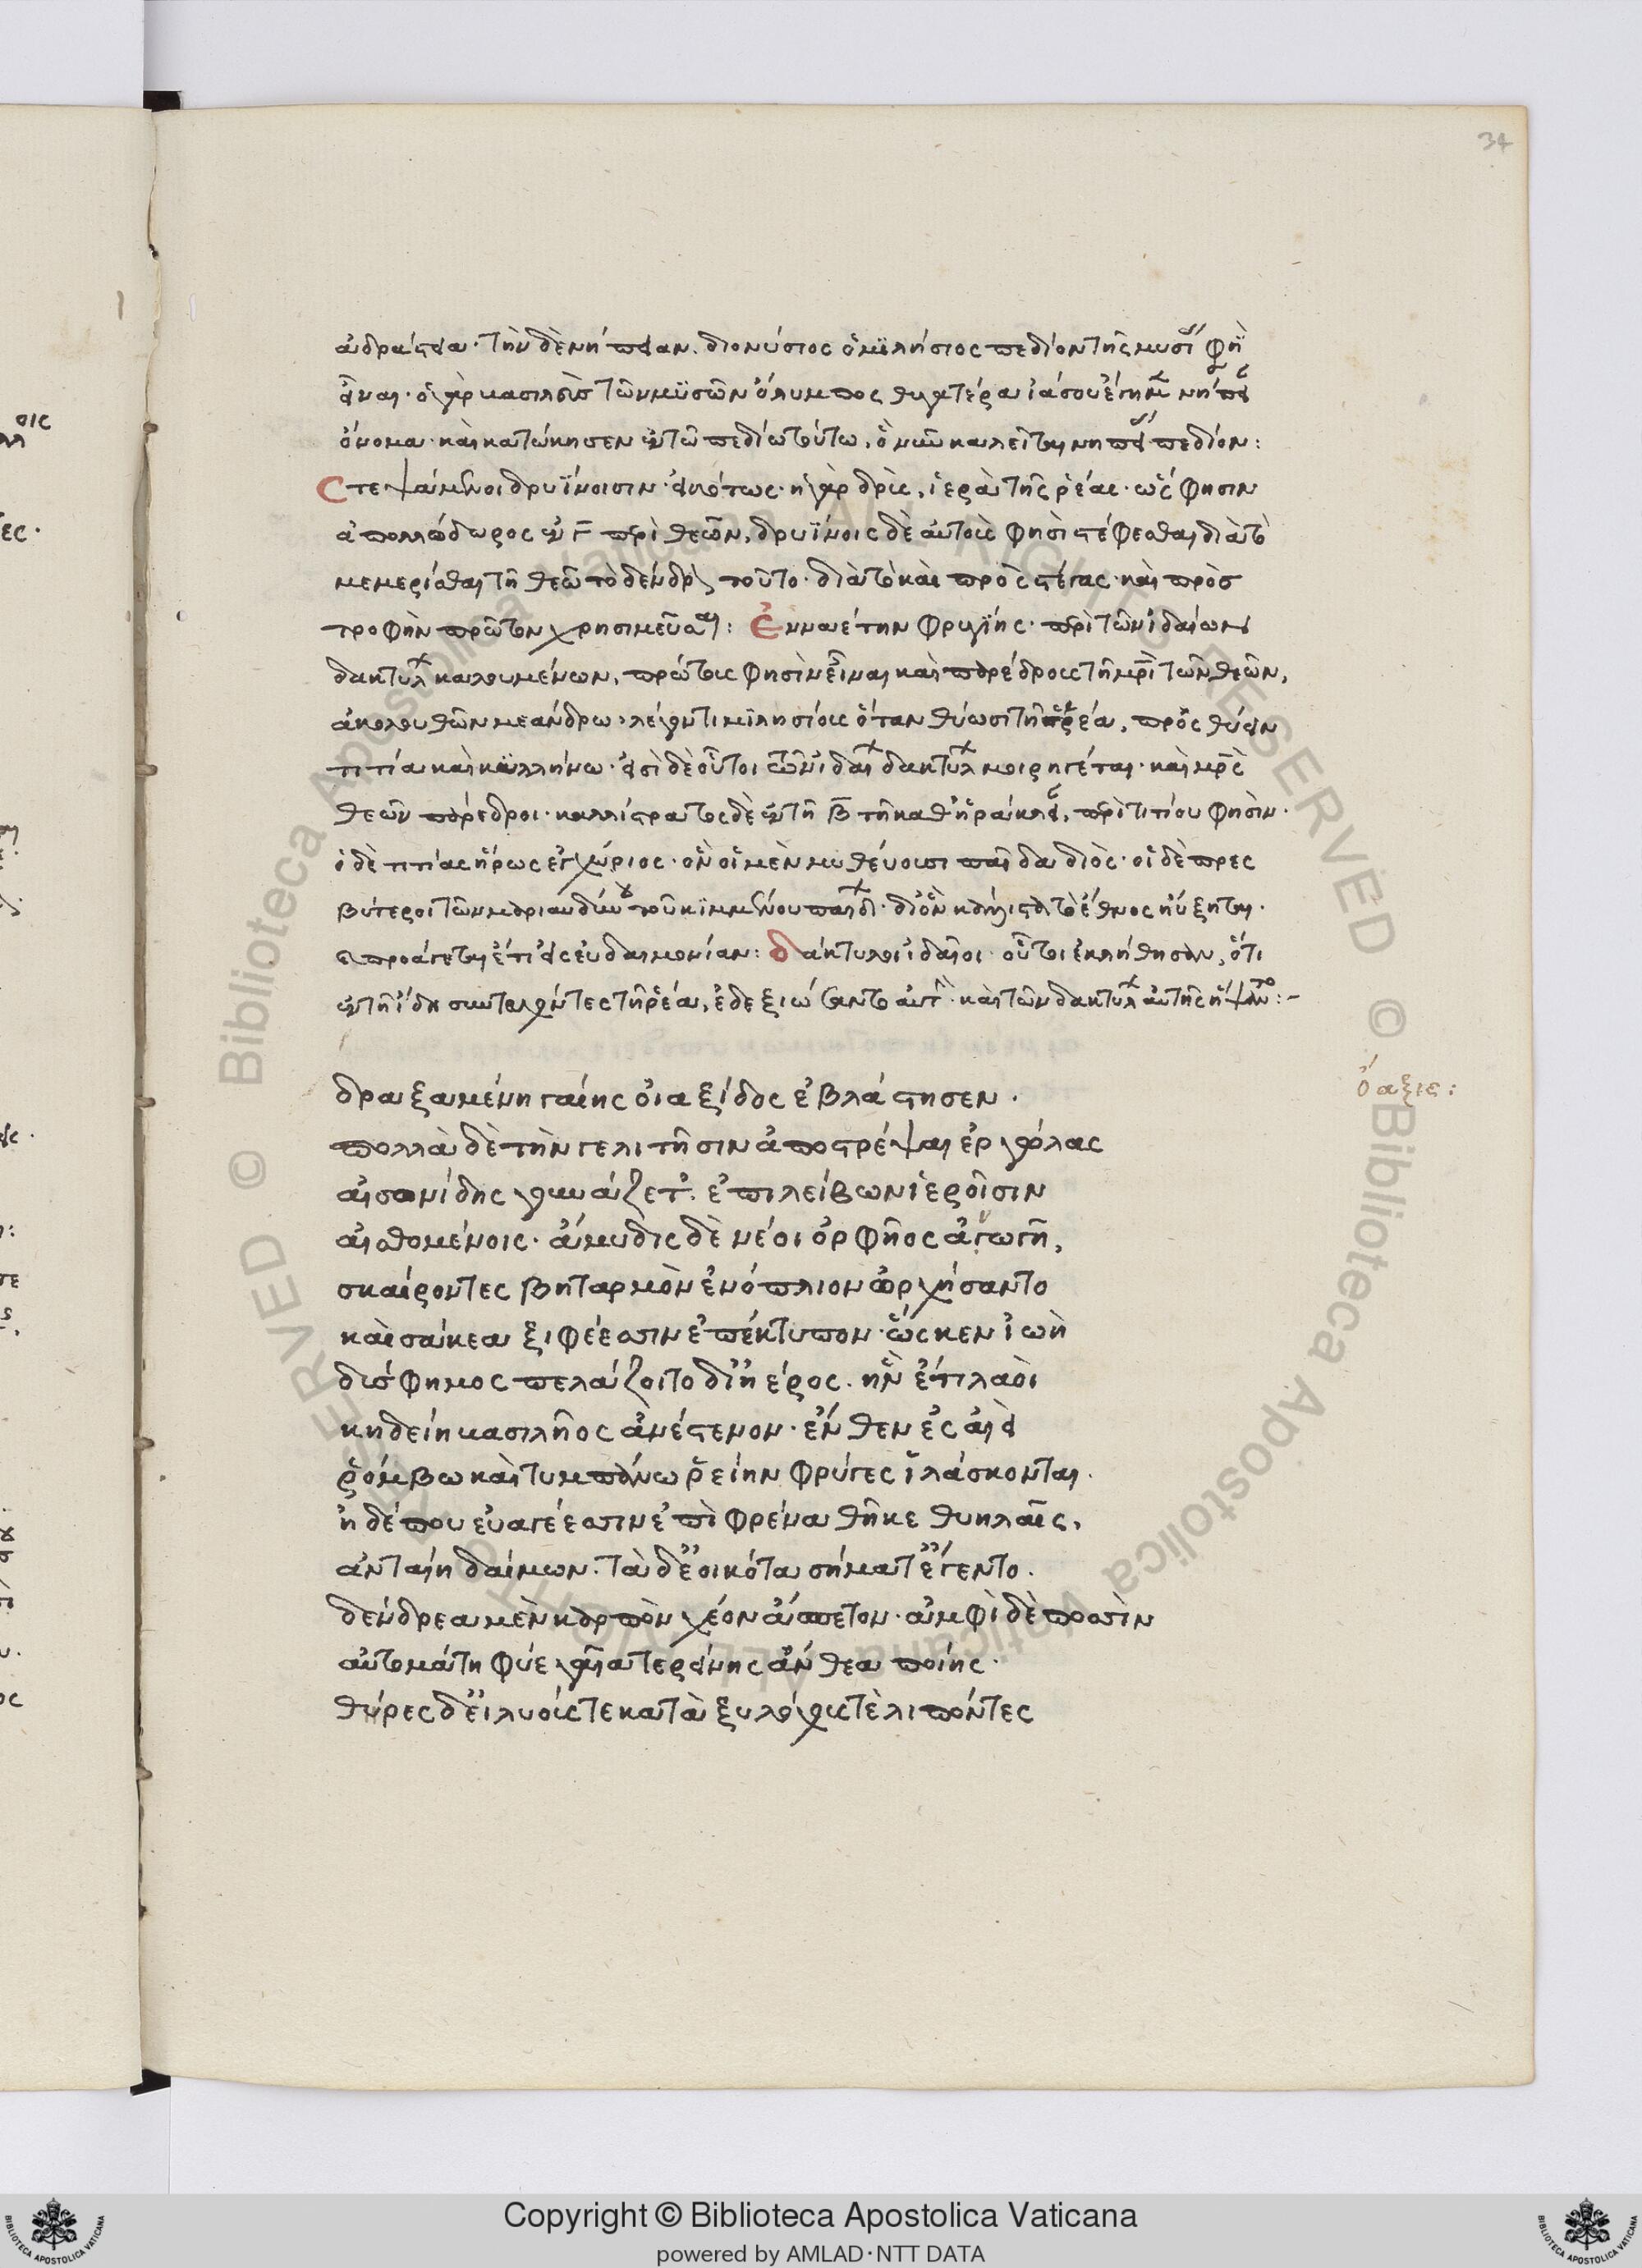 34
ἀδράστεια· τὴν δὲ νήπειαν, διονύσιος ὁ μϊλήσιος πεδίον τῆς μυσί φη
εἶναι· ὁ γὰρ βασιλεὺς τῶν μϋσῶν ὄλυμπος θυγατέρα ἰάσου ἔγημ νήπει
ὄνομα· καὶ κατώκησεν ἐν τῶ πεδίω τούτω, ὃ νῦν καλεῖται νηπεί πεδίον:
Στεψάμενοι δρυΐνοισιν· εἰκότως· ἡ γὰρ δρῦς, ἱερὰ τῆς ῥέας· ὥς φησιν
ἀπολλόδωρος ἐν γ περὶ θεῶν, δρυΐνοις δὲ αὐτοὺς φησὶ στέφεσθαι διὰ τὸ
μεμερίσθαι τῆ θεῶ τὸ δένδρον τοῦτο· διὰ τὸ καὶ πρὸς στέγας καὶ πρὸς
τροφὴν πρῶτον χρησιμεῦσαι: Ἐνναέτην φρυγίης· περὶ τῶν ἰδαίων
δακτυλ καλουμένων, πρώτους φησὶν εἶναι καὶ παρέδρους τῆς μρὶ τῶν θεῶν,
ἀκολουθῶν μεάνδρω· λέγοντι μιλησίους ὅταν θύωσι τῆ ῥέα, προθύειν
τιτία καὶ κϋλλήνω· εἰσὶ δὲ οὗτοι τῶν ἰδαί δακτυλ μοιρηγέται· καὶ μρς
θεῶν πάρεδροι· καλλίστρατος δὲ ἐν τῆ β τῆ καθ' ἡράκλει, περὶ τιτίου φησὶν·
ὁ δὲ τιτίας ἥρως ἐγχώριος· ὃν οἱ μὲν μυθεύουσι παῖδα διός· οἱ δὲ πρες
βύτεροι τῶν μαριανδυνου τοῦ κϊμμενίου παιδ· δι' ὃν μάλιστα τὸ ἔθνος ηὔξηται·
καὶ προάγεται ἔτι εἰς εὐδαιμονίαν: δάκτυλοι ἰδαῖοι· οὗτοι ἐκλήθησαν, ὅτι
ἐν τῆ ἴδη συντελοῦντες τῆ ῥέα, ἐδεξιώσαντο αὐτ· καὶ τῶν δακτυλ αὐτῆς ἥψαντο:-
ὄαξις:
δραξαμένη γαίης ὀιαξίδος ἐβλάστησεν·
πολλὰ δὲ τὴν γε λιτῆσιν ἀποστρέψαι ἐριώλας
αἰσονίδης γουνάζετ', ἐπιλείβων ἱεροῖσιν
αἰθομένοις· ἄμυδις δὲ νέοι ὀρφῆος ἀγωγῆ,
σκαίροντες βηταρμὸν ἐνόπλιον ὠρχήσαντο
καὶ σάκεα ξιφέεσσιν ἐπέκτυπον· ὥς κεν ἰωὴ
δύσφημος πελάζοιτο δι' ἠέρος· ἣν ἔτι λαοὶ
κηδείη βασιλῆος ἀνέστενον· ἔνθεν ἐς αἰεὶ
ῥόμβω καὶ τυμπάνω ῥείην φρύγες ἱλάσκονται·
ἡ δέ που εὐαγέεσσιν ἐπὶ φρένα θῆκε θυηλαῖς,
ἀνταίη δαίμων· τὰ δ' ἐοικότα σήματ' ἔγεντο.
δένδρεα μὲν καρπὸν χέον ἄσπετον· ἀμφὶ δὲ ποσσὶν
αὐτομάτη φύε γαῖα τερείνης ἄνθεα ποίης·
θῆρες δ' εἰλυούς τε κατὰ ξυλόχους τὲ λιπόντες
Copyright © Biblioteca Apostolica Vaticana
powered by AMLAD·NTT DATA